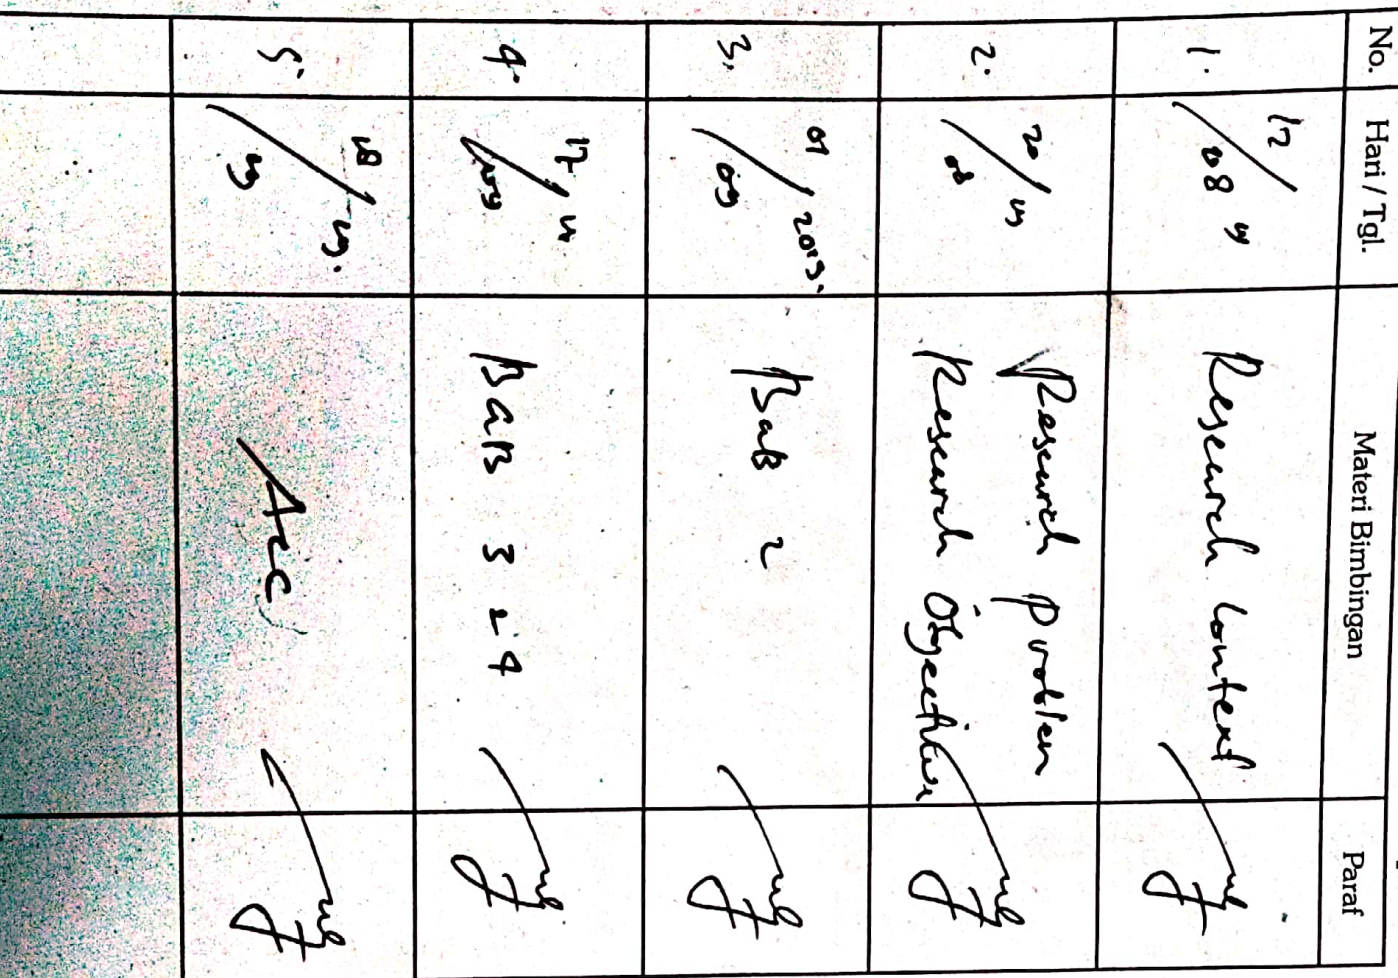 No. Hari / Tgl. Materi Bimbingan Paraf
1. 12/08 19 Research Context
2. 20/08 19 Research problem
Research Objective
3. 09/09 2019. Bab 2
4. 17/09 19 BaB 3 & 4
5. 18/09 19. Acc